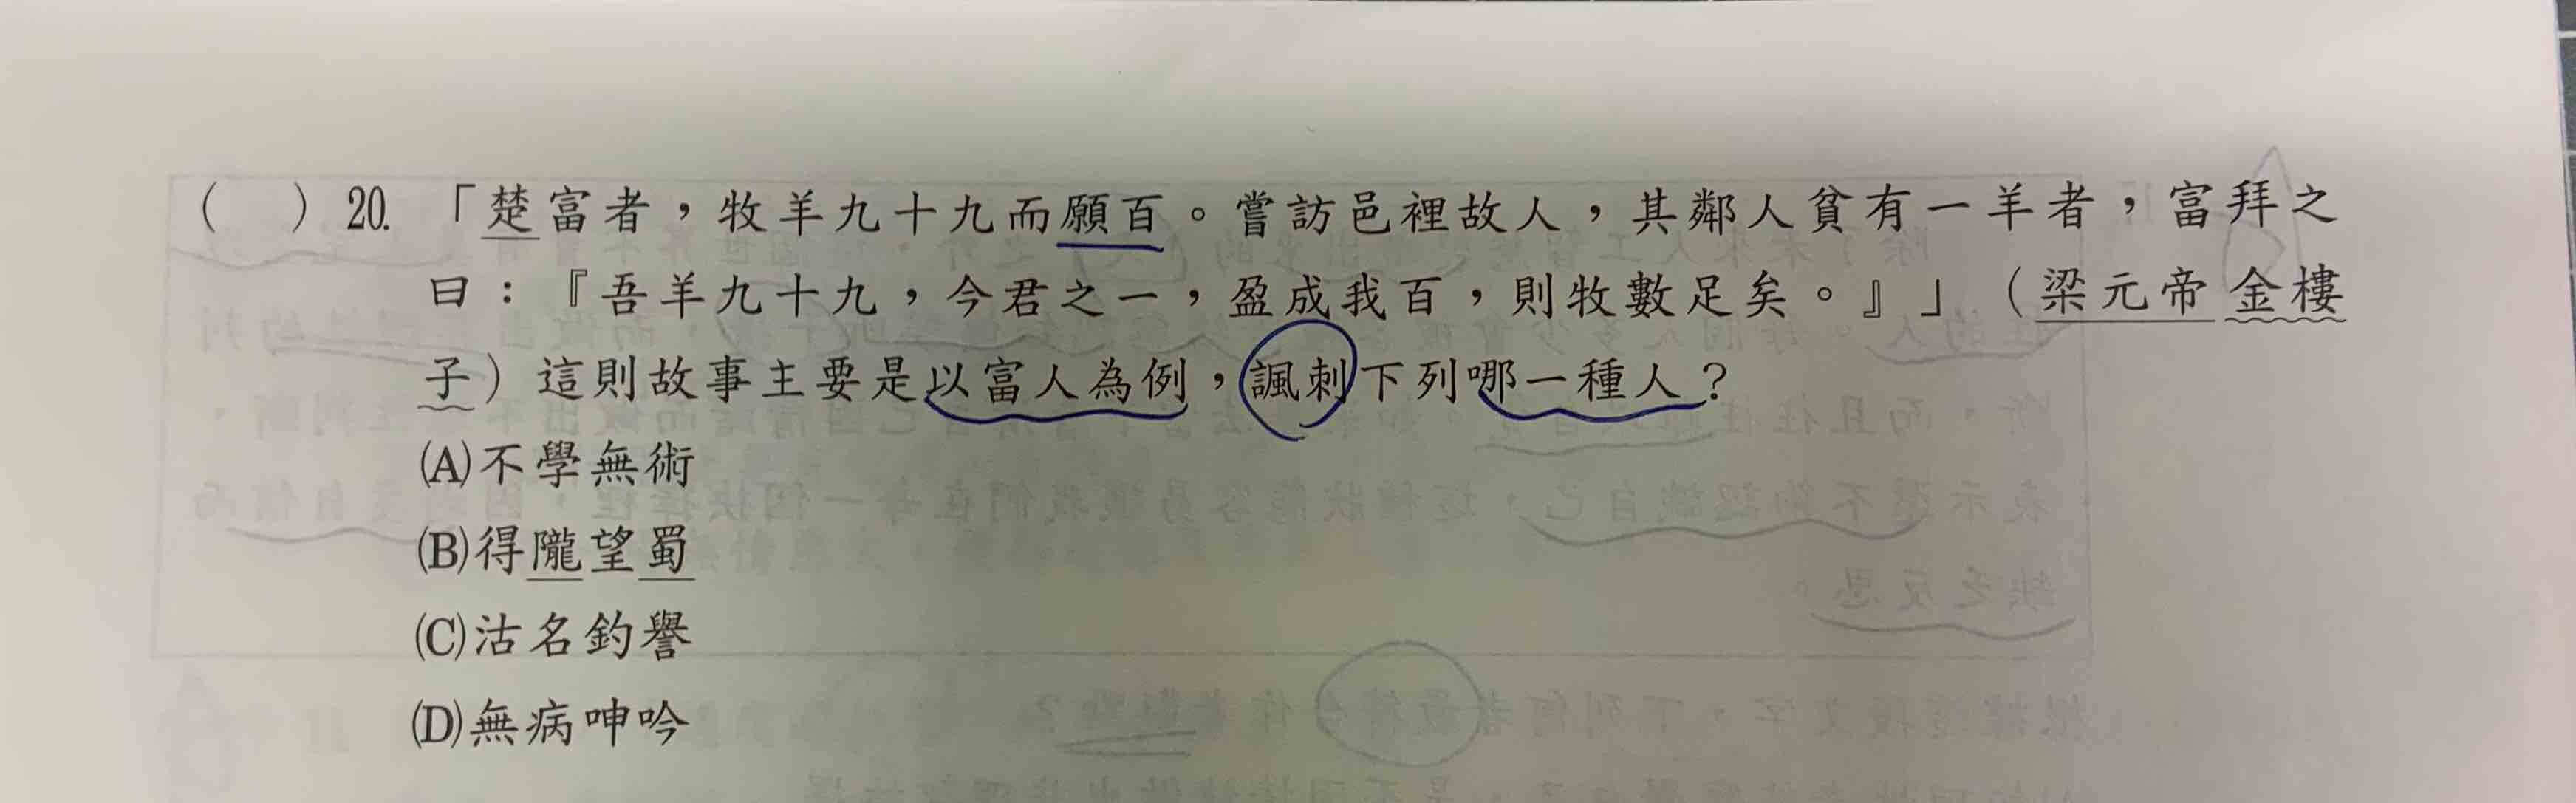 （　）20.「楚富者，牧羊九十九而願百。嘗訪邑裡故人，其鄰人貧有一羊者，富拜之
曰：『吾羊九十九，今君之一，盈成我百，則牧數足矣。』」（梁元帝 金樓
子）這則故事主要是以富人為例，諷刺下列哪一種人？
(A)不學無術
(B)得隴望蜀
(C)沽名釣譽
(D)無病呻吟